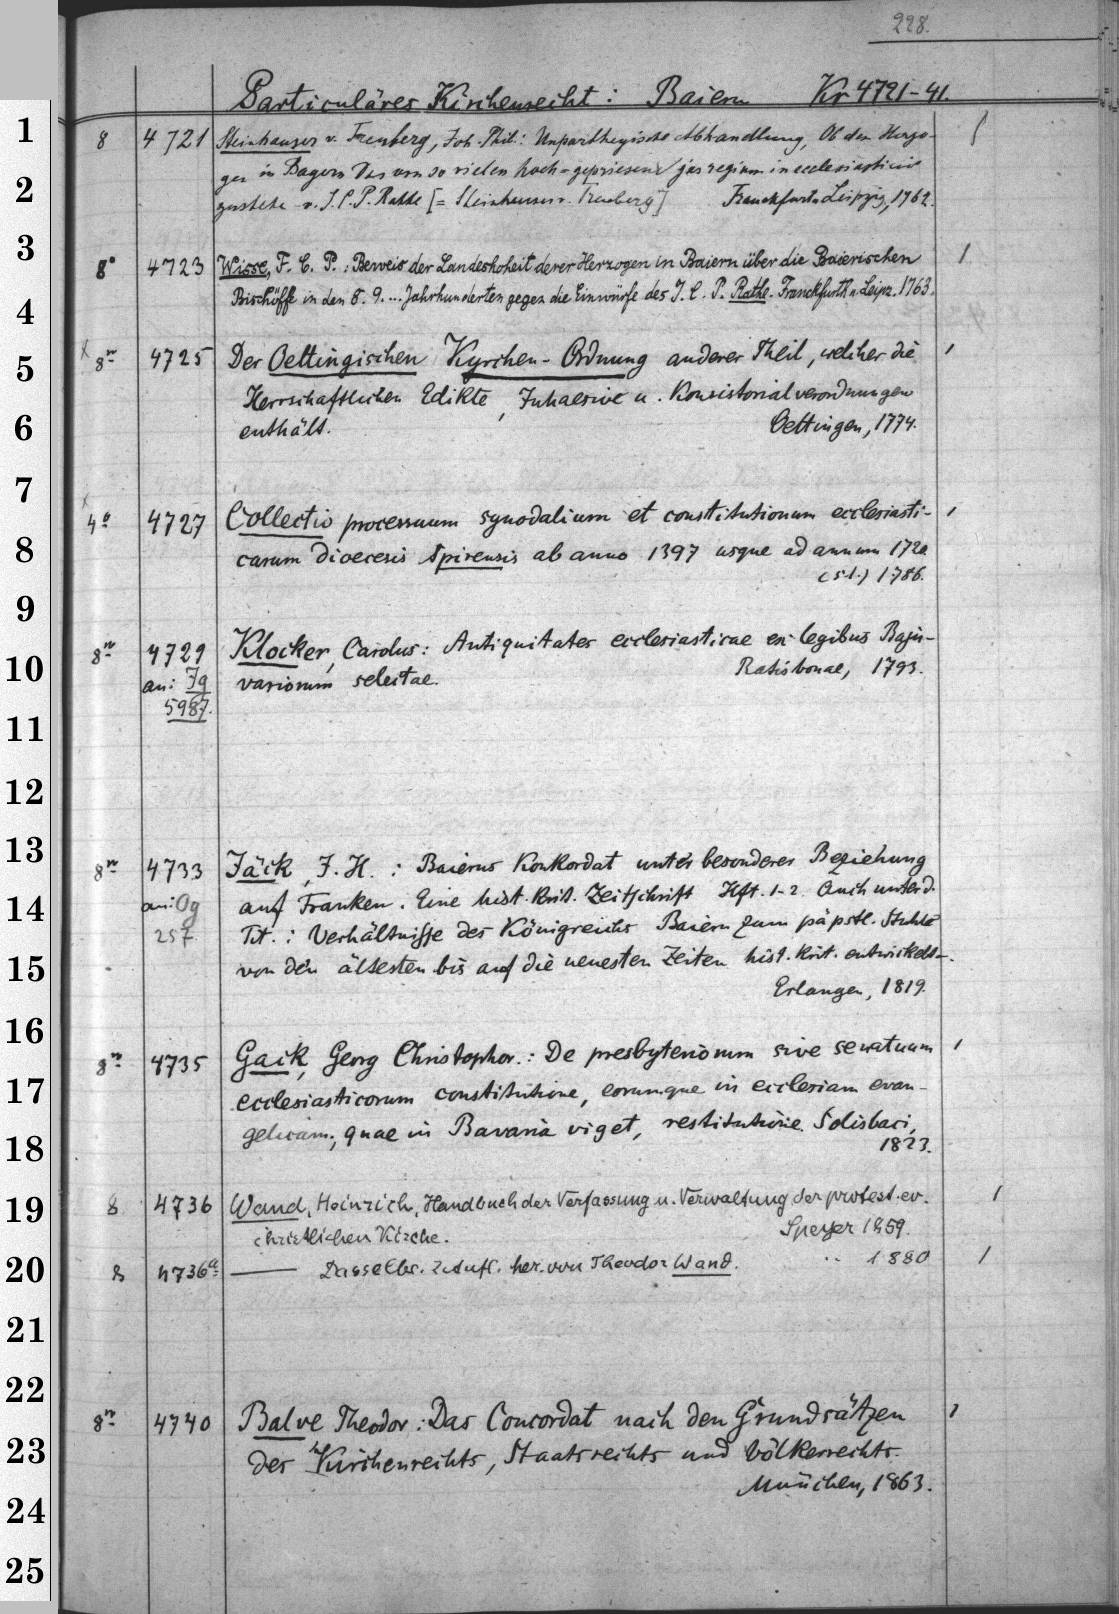 228.
Particuläres Kirchenrecht: Baiern Kr 4721-41.
1
8 4721 Steinhauser v. Treuberg, Joh. Phil.: Unpartheyische Abhandlung, Ob den Herzo-
2
gen in Bayern das von so vielen hoch-gepriesene jus regium in ecclesiasticis
zustehe v. J. C. P. Rathe [= Steinhauser v. Treuberg] Franckfurt u Leipzig, 1762.
3
8° 4723 Wisse, F. C. P.: Beweis der Landeshoheit derer Herzogen in Baiern über die Baierischen
4
Bischöffe in den 8. 9. ... Jahrhunderten gegen die Einwürfe des J. C. P. Rathe. Franckfurth u. Leipz. 1763.
5
x 8° 4725 Der Oettingischen Kyrchen-Ordnung anderer Theil, welcher die
Herrschaftlichen Edikte, Inhaesive u. Konsistorialverordnungen
6
enthält. Oettingen, 1774.
7
x 4° 4727 Collectio processuum synodalium et constitutionum ecclesiasti-
8
carum dioecesis Spirensis ab anno 1397 usque ad annum 1720
(s.l.) 1786.
9
8° 4729 Klocker, Carolus: Antiquitates ecclesiasticae ex legibus Baju-
10
an: Jg variorum selectae. Ratisbonae, 1793.
5987.
11
12
13
8° 4733 Jäck, J. H.: Baierns Konkordat unter besonderer Beziehung
14
an: Og auf Franken. Eine hist. krit. Zeitschrift Hft. 1-2 Auch unter d.
257 Tit.: Verhältnisse des Königreichs Baiern zum päpstl. Stuhle
15
von den ältesten bis auf die neuesten Zeiten hist. krit. entwickelt-.
Erlangen, 1819.
16
8° 4735 Gack, Georg Christophor.: De presbyteriorum sive senatuum
17
ecclesiasticorum constitutione, eorumque in ecclesiam evan-
gelicam, quae in Bavaria viget, restitutione. Solisbaci,
18
1823.
19
8 4736 Wand, Heinrich, Handbuch der Verfassung u. Verwaltung der protest. ev.
christlichen Kirche. Speyer 1859.
20
8 4736a —— Dasselbe. 2. Aufl. her. von Theodor Wand. " 1880
21
22
8° 4740 Balve Theodor: Das Concordat nach den Grundsätzen
23
des Kirchenrechts, Staatsrechts und Völkerrechts.
München, 1863.
24
25